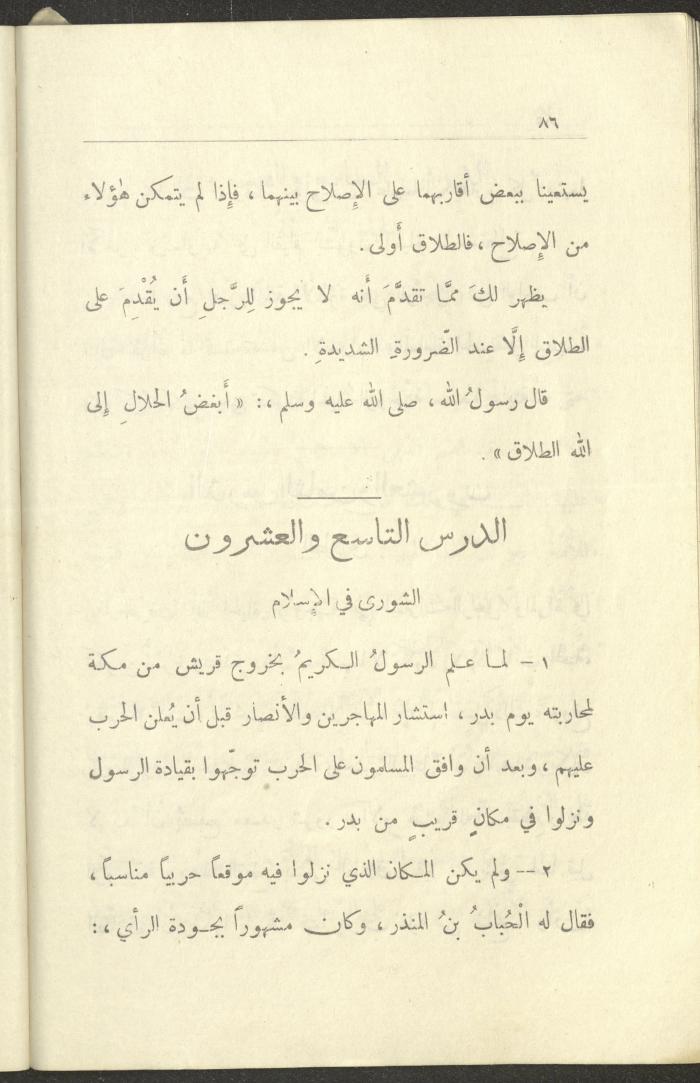 ٨٦
يستعينا ببعض أقاربهما على الإِصلاح بينهما ، فإِذا لم يتمكن هٰؤلاء
من الإِصلاح ، فالطلاق أَولى .
يظهر لكَ ممَّا تقدَّمَ أَنه لا يجوز لِلرَّجلِ أَن يُقْدِمَ على
الطلاق إِلَّا عند الضّرورةِ الشديدةِ .
قال رسولُ الله ، صلى الله عليه وسلم ،: « أَبغضُ الحلالِ إِلى
الله الطلاق » .
الدرس التاسع والعشرون
الشورى في الإِسلام
١ - لما علم الرسولُ الكريمُ بخروج قريش من مكة
لمحاربته يوم بدر ، استشار المهاجرين والأنصار قبل أن يُعلن الحرب
عليهم ، وبعد أن وافق المسلمون على الحرب توجّهوا بقيادة الرسول
ونزلوا في مكانٍ قريبٍ من بدر .
٢ -- ولم يكن المكان الذي نزلوا فيه موقعاً حربياً مناسباً ،
فقال له الْحُبابُ بنُ المنذر ، وكان مشهوراً بجودة الرأي ،: